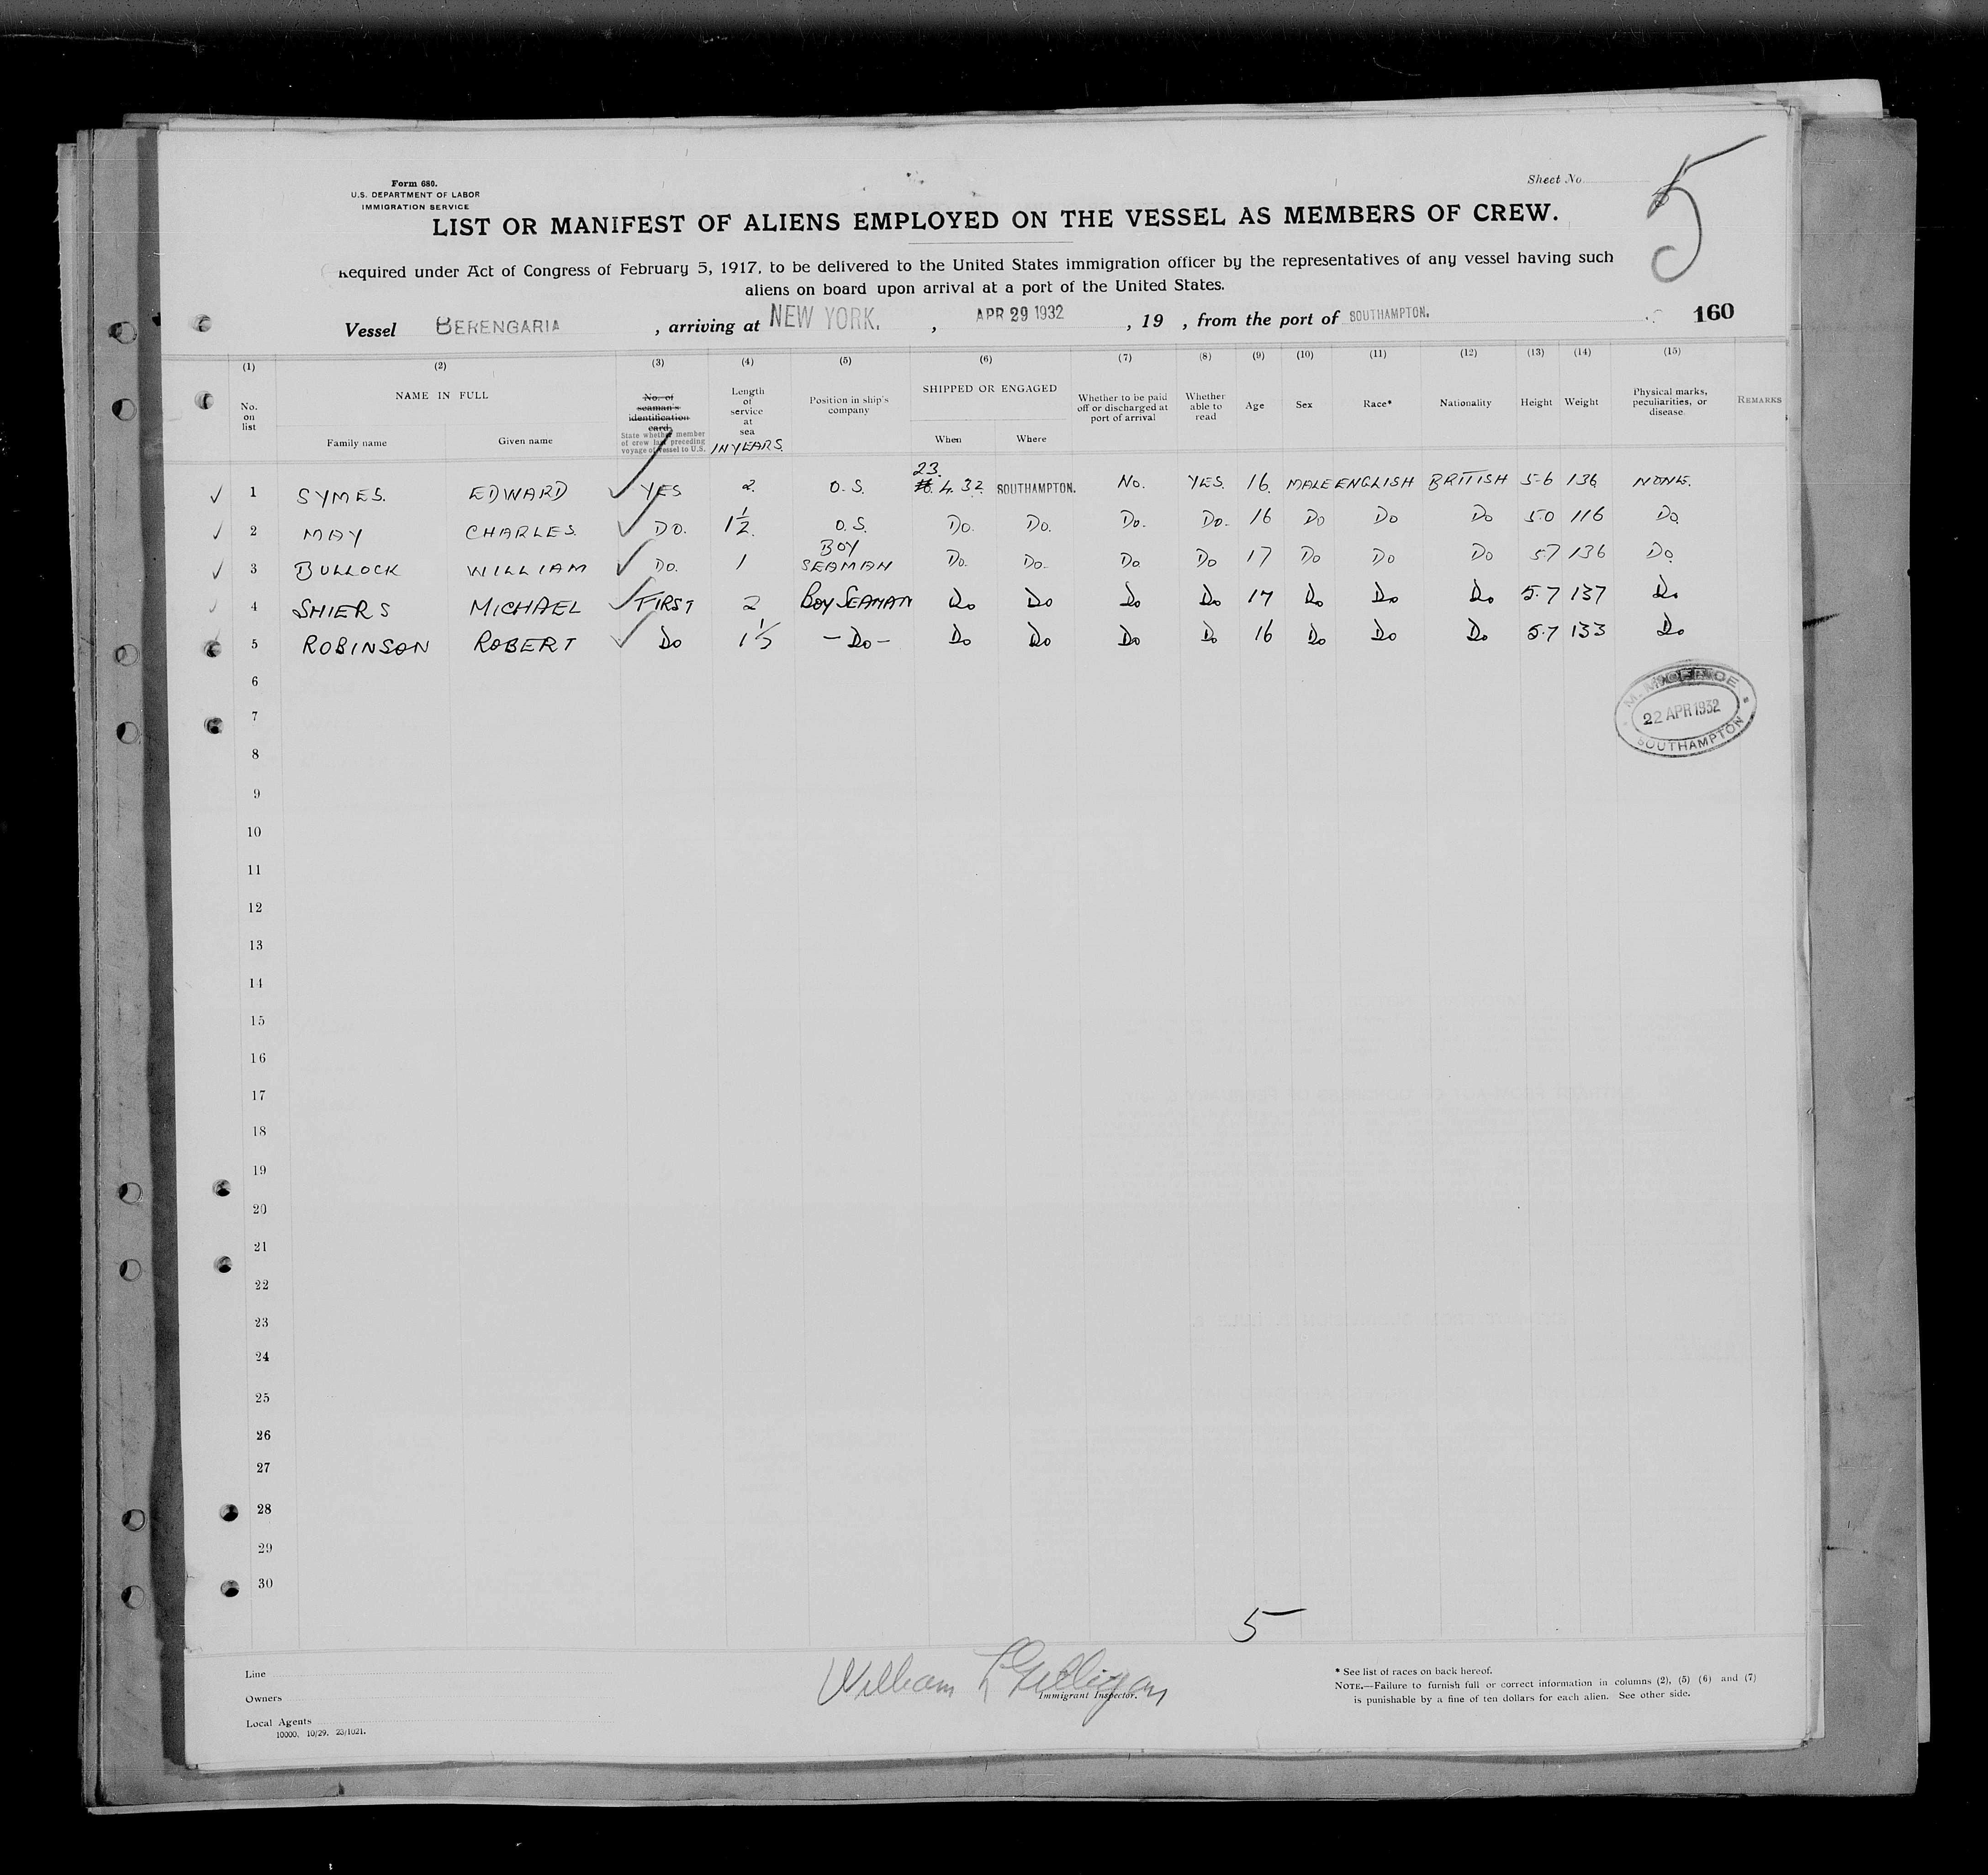 Form 680.
U.S. DEPARTMENT OF LABOR
IMMIGRATION SERVICE
Sheet No.
5
LIST OR MANIFEST OF ALIENS EMPLOYED ON THE VESSEL AS MEMBERS OF CREW.
Required under Act of Congress of February 5, 1917, to be delivered to the United States immigration officer by the representatives of any vessel having such
aliens on board upon arrival at a port of the United States.
Vessel BERENGARIA , arriving at NEW YORK. , APR 29 1932 , 19 , from the port of SOUTHAMPTON. 160
(1) (2) (3) (4) (5) (6) (7) (8) (9) (10) (11) (12) (13) (14) (15)
No. on list
NAME IN FULL
Family name Given name
No. of seaman's identification card
State whether member of crew last preceding voyage of vessel to U.S.
Length of service at sea
IN YEARS.
Position in ship's company
SHIPPED OR ENGAGED
When Where
Whether to be paid off or discharged at port of arrival
Whether able to read
Age
Sex
Race*
Nationality
Height
Weight
Physical marks, peculiarities, or disease
REMARKS
1 SYMES. EDWARD YES 2. O.S. 23. 4.32. SOUTHAMPTON. No. YES. 16. MALE ENGLISH BRITISH 5-6 136 NONE.
2 MAY CHARLES. DO. 1½. O.S. Do. Do. Do. Do. 16 Do Do Do 5.0 116 Do.
3 BULLOCK WILLIAM Do. 1 BOY SEAMAN Do. Do. Do Do 17 Do Do Do 5.7 136 Do.
4 SHIERS MICHAEL FIRST 2 BOY SEAMAN Do Do Do Do 17 Do Do Do 5.7 137 Do
5 ROBINSON ROBERT Do 1½ – Do – Do Do Do Do 16 Do Do Do 5.7 133 Do
6
7
8
9
10
11
12
13
14
15
16
17
18
19
20
21
22
23
24
25
26
27
28
29
30
22 APR 1932
SOUTHAMPTON
5
Line
Owners
Local Agents
10000. 10/29. 23/1021.
William L Gilligan
Immigrant Inspector.
* See list of races on back hereof.
NOTE.—Failure to furnish full or correct information in columns (2), (5) (6) and (7)
is punishable by a fine of ten dollars for each alien. See other side.